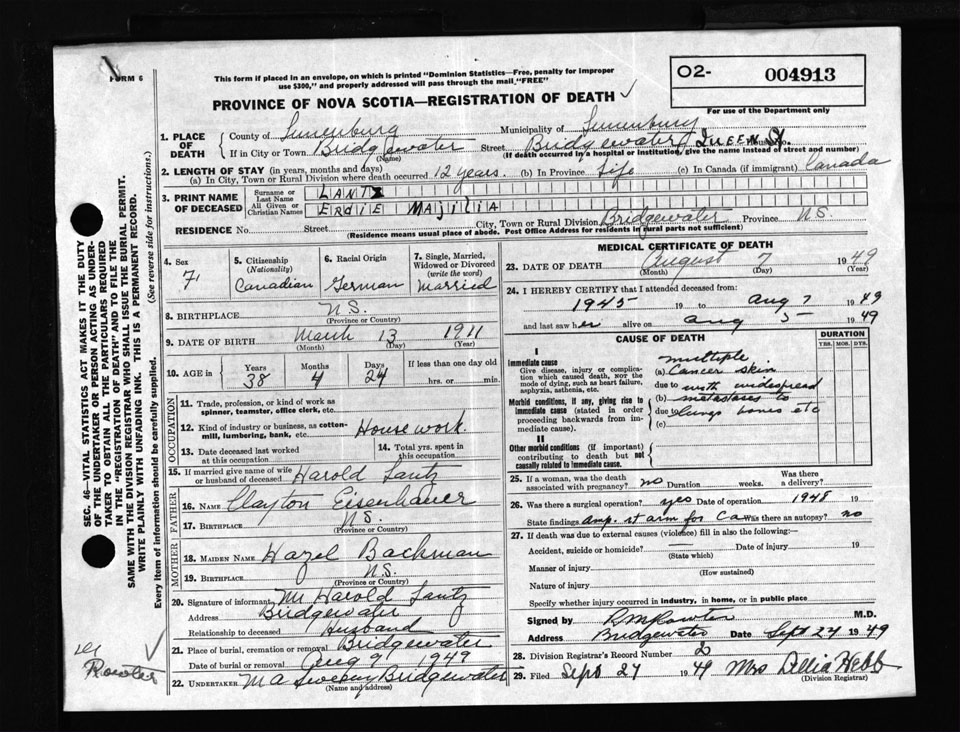 FORM 6
This form if placed in an envelope, on which is printed "Dominion Statistics—Free, penalty for improper
use $300," and properly addressed will pass through the mail "FREE"
O2- 004913
For use of the Department only
PROVINCE OF NOVA SCOTIA—REGISTRATION OF DEATH ✓
1. PLACE OF DEATH
County of Lunenburg Municipality of Lunenburg
If in City or Town Bridgewater Street Bridgewater Queen St. House No.
(Name) (If death occurred in a hospital or institution, give the name instead of street and number)
2. LENGTH OF STAY (in years, months and days)
(a) In City, Town or Rural Division where death occurred 12 years. (b) In Province Life (c) In Canada (if immigrant) Canada
3. PRINT NAME OF DECEASED
Surname or Last Name LANTZ
All Given or Christian Names ERDIE MAJILIA
RESIDENCE No. Street City, Town or Rural Division Bridgewater Province N.S.
(Residence means usual place of abode. Post Office Address for residents in rural parts not sufficient)
4. Sex F.
5. Citizenship (Nationality) Canadian
6. Racial Origin German
7. Single, Married, Widowed or Divorced (write the word) Married
8. BIRTHPLACE N.S.
(Province or Country)
9. DATE OF BIRTH March 13 1911
(Month) (Day) (Year)
10. AGE in Years 38 Months 4 Days 24 If less than one day old hrs. or min.
OCCUPATION
11. Trade, profession, or kind of work as
spinner, teamster, office clerk, etc.
12. Kind of industry or business, as cotton-
mill, lumbering, bank, etc. Housework.
13. Date deceased last worked
at this occupation
14. Total yrs. spent in
this occupation
15. If married give name of wife
or husband of deceased Harold Lantz
FATHER
16. NAME Clayton Eisenhauer
17. BIRTHPLACE N.S.
(Province or Country)
MOTHER
18. MAIDEN NAME Hazel Bachman
19. BIRTHPLACE N.S.
(Province or Country)
20. Signature of informant Mr Harold Lantz
Address Bridgewater
Relationship to deceased Husband
21. Place of burial, cremation or removal Bridgewater
Date of burial or removal Aug 9 1949
22. UNDERTAKER M A Sweeny Bridgewater
(Name and address)
MEDICAL CERTIFICATE OF DEATH
23. DATE OF DEATH August 7 1949
(Month) (Day) (Year)
24. I HEREBY CERTIFY that I attended deceased from:
1945 19 to Aug 7 1949
and last saw her alive on Aug 5 1949
CAUSE OF DEATH DURATION
YRS. MOS. DYS.
I
Immediate cause
Give disease, injury or complica-
tion which caused death, not the
mode of dying, such as heart failure,
asphyxia, asthenia, etc.
multiple
(a) Cancer skin
due to with widespread
Morbid conditions, if any, giving rise to
immediate cause (stated in order
proceeding backwards from im-
mediate cause).
(b) metastases to
due to lungs bones etc
(c)
II
Other morbid conditions (if important)
contributing to death but not
causally related to immediate cause.
25. If a woman, was the death
associated with pregnancy? no Duration weeks. Was there a delivery?
26. Was there a surgical operation? yes Date of operation 1948 19
State findings Amp. st arm for Ca Was there an autopsy? no
27. If death was due to external causes (violence) fill in also the following:
Accident, suicide or homicide? Date of injury 19
(State which)
Manner of injury
(How sustained)
Nature of injury
Specify whether injury occurred in industry, in home, or in public place
Signed by R M Rowter M.D.
Address Bridgewater Date Sept 24 1949
28. Division Registrar's Record Number 2
29. Filed Sept 27 1949 Mrs Dellia Hebb
(Division Registrar)
SEC. 46—VITAL STATISTICS ACT MAKES IT THE DUTY
OF THE UNDERTAKER OR PERSON ACTING AS UNDER-
TAKER TO OBTAIN ALL THE PARTICULARS REQUIRED
IN THE "REGISTRATION OF DEATH" AND TO FILE THE
SAME WITH THE DIVISION REGISTRAR WHO SHALL ISSUE THE BURIAL PERMIT.
WRITE PLAINLY WITH UNFADING INK. THIS IS A PERMANENT RECORD.
Every item of information should be carefully supplied. (See reverse side for instructions.)
Rowter